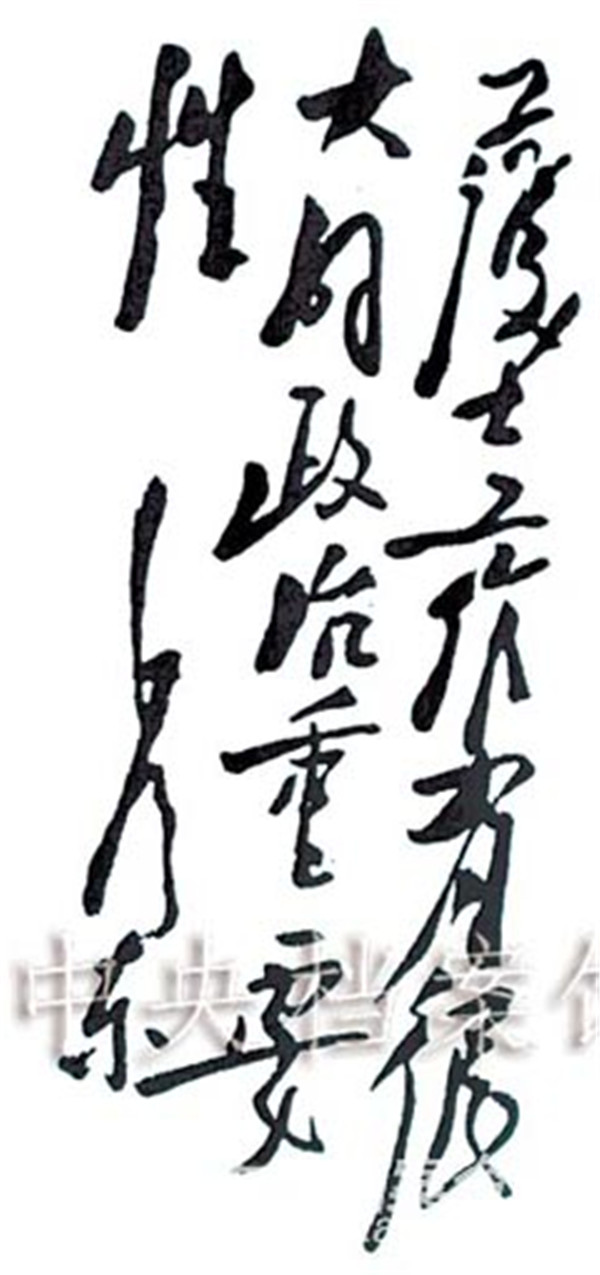 護士工作有很
大的政治重要
性
毛泽东
中央档案馆